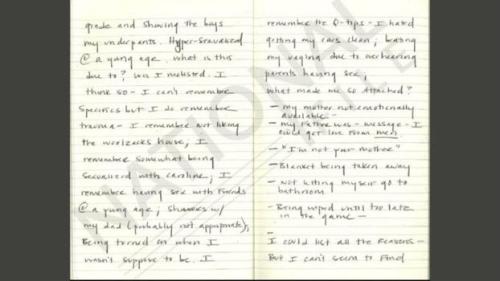 grade and showing the boys
my underpants. Hyper-sexualized
@ a young age. What is this
due to? Was I molested. I
think so - I can't remember
specifics but I do remember
trauma - I remember not liking
the woolzacks house; I
remember somewhat being
sexualized with caroline; I
remember having sex with friends
@ a young age; showers w/
my dad (probably not appropriate);
Being turned on when I
wasn't suppose to be. I
remember the Q-tips - I hated
getting my ears clean;
my vagina due to overhearing
parents having sex;
What made me so Attached?
- my mother not emotionally
available -
- my Father was - message - I
could get love from men
- "I'm not your mother"
- Blanket being taken away
- Not letting myself go to
bathroom
- Being wiped until too late
in the game -
-
I could list all the Reasons -
But I can't seem to find
NATIONAL FILE